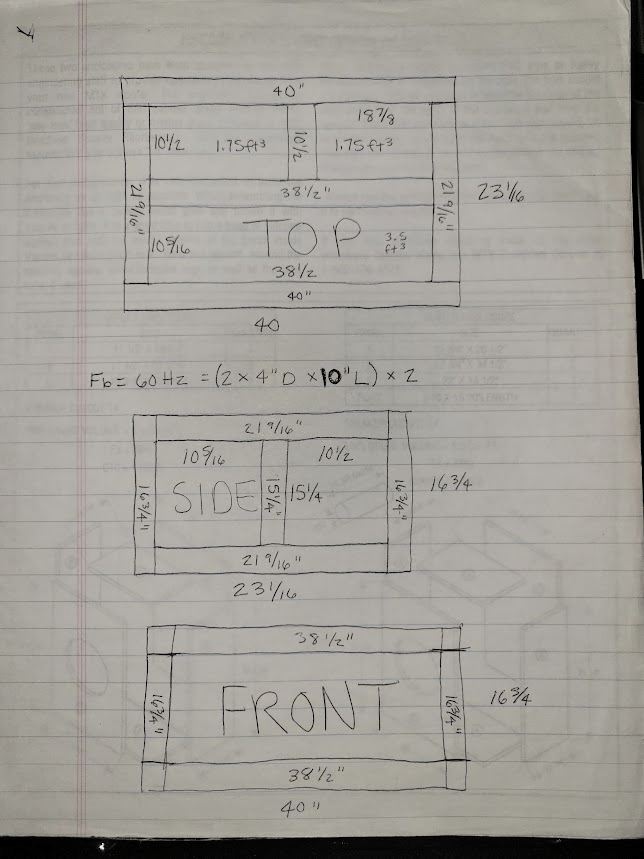 7
40"
18 7/8
10 1/2 1.75ft³ 10 1/2 1.75ft³
21 9/16" 38 1/2" 21 9/16" 23 1/16
10 5/16 TOP 3.5 ft³
38 1/2
40"
40
Fb = 60 Hz = (2 x 4" D x 10" L) x 2
21 9/16"
10 5/16 10 1/2
16 3/4" SIDE 15 1/4" 15 1/4 16 3/4" 16 3/4
21 9/16"
23 1/16
38 1/2"
16 3/4" FRONT 16 3/4" 16 3/4
38 1/2"
40"